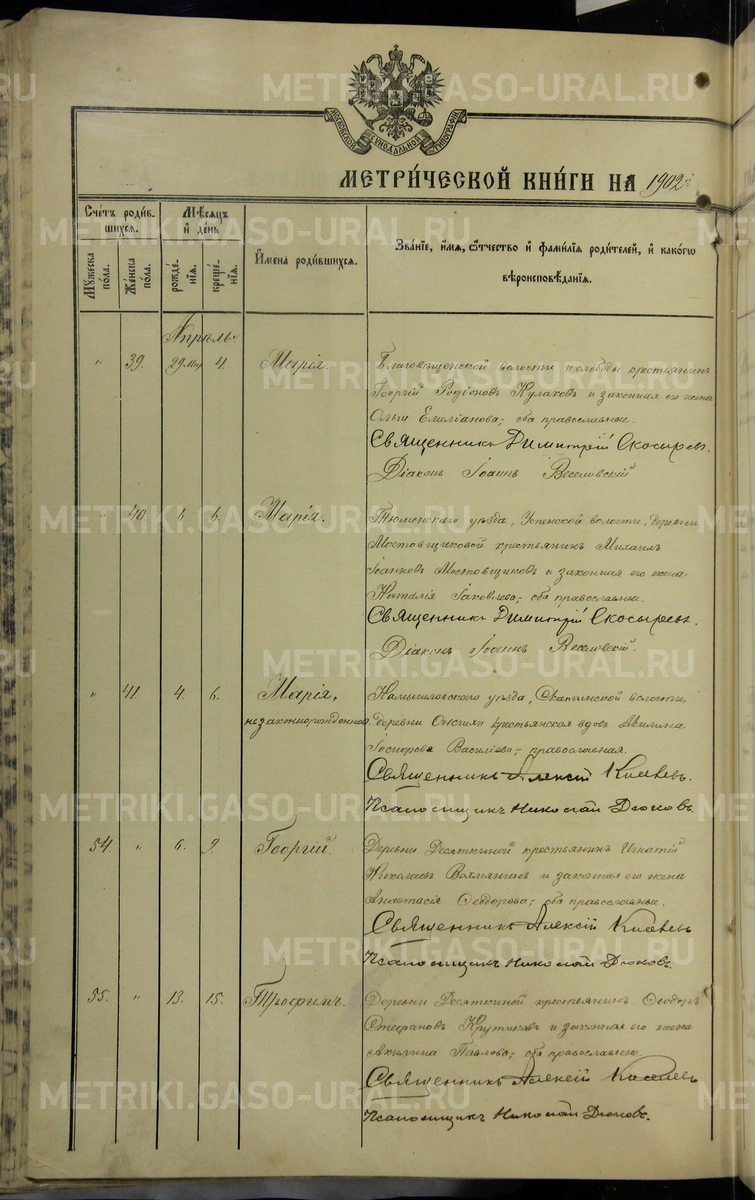 METRIKI.GASO-URAL.RU
МОСКОВСКОЙ СѴНОДАЛЬНОЙ ТИПОГРАФІИ
МЕТРИ́ЧЕСКОЙ КНИ́ГИ НА 1902 г.
Сче́тъ роди́вшихся.
Мѣ́сяцъ и де́нь
Му́жеска по́ла.
Же́нска по́ла.
рожде́нія.
креще́нія.
И҆мена роди́вшихся.
Зва́ніе, и҆́мя, ѻ҆́тчество и҆ фами́лія роди́телей, и҆ како́гѡ
вѣроисповѣ́данія.
Апрѣль
" 39. 29 Мар. 4. Марія.
Благовѣщенской волости и слободы крестьянинъ
Георгій Родіоновъ Кулаковъ и законная его жена
Ольга Емиліанова, оба православные.
Священникъ Димитрій Скосыревъ.
Діаконъ Іоаннъ Веселовскій
" 40 6. Марія.
Тюменскаго уѣзда, Успенской волости, деревни
Мостовщиковой крестьянинъ Михаилъ
Іоанновъ Мостовщиковъ и законная его жена
Наталія Іаковлева, оба православные.
Священникъ Димитрій Скосыревъ.
Діаконъ Іоаннъ Веселовскій.
" 41. 4. 6. Марія,
незаконнорожденная
Камышловскаго уѣзда, волости,
деревни крестьянская вдова
Васильева, православная.
Священникъ Алексій Киселевъ.
Псаломщикъ Николай Дюковъ.
54 " 6. 9. Георгій.
Деревни Десяткиной крестьянинъ Игнатій
Николаевъ и законная его жена
Анастасія Ѳеодорова, оба православные.
Священникъ Алексій Киселевъ
Псаломщикъ Николай Дюковъ.
55. " 13. 15. Трофимъ.
Деревни Десяткиной крестьянинъ Ѳеодоръ
Стефановъ Крутиковъ и законная его жена
Акилина Павлова, оба православные.
Священникъ Алексій Киселевъ
Псаломщикъ Николай Дюковъ.